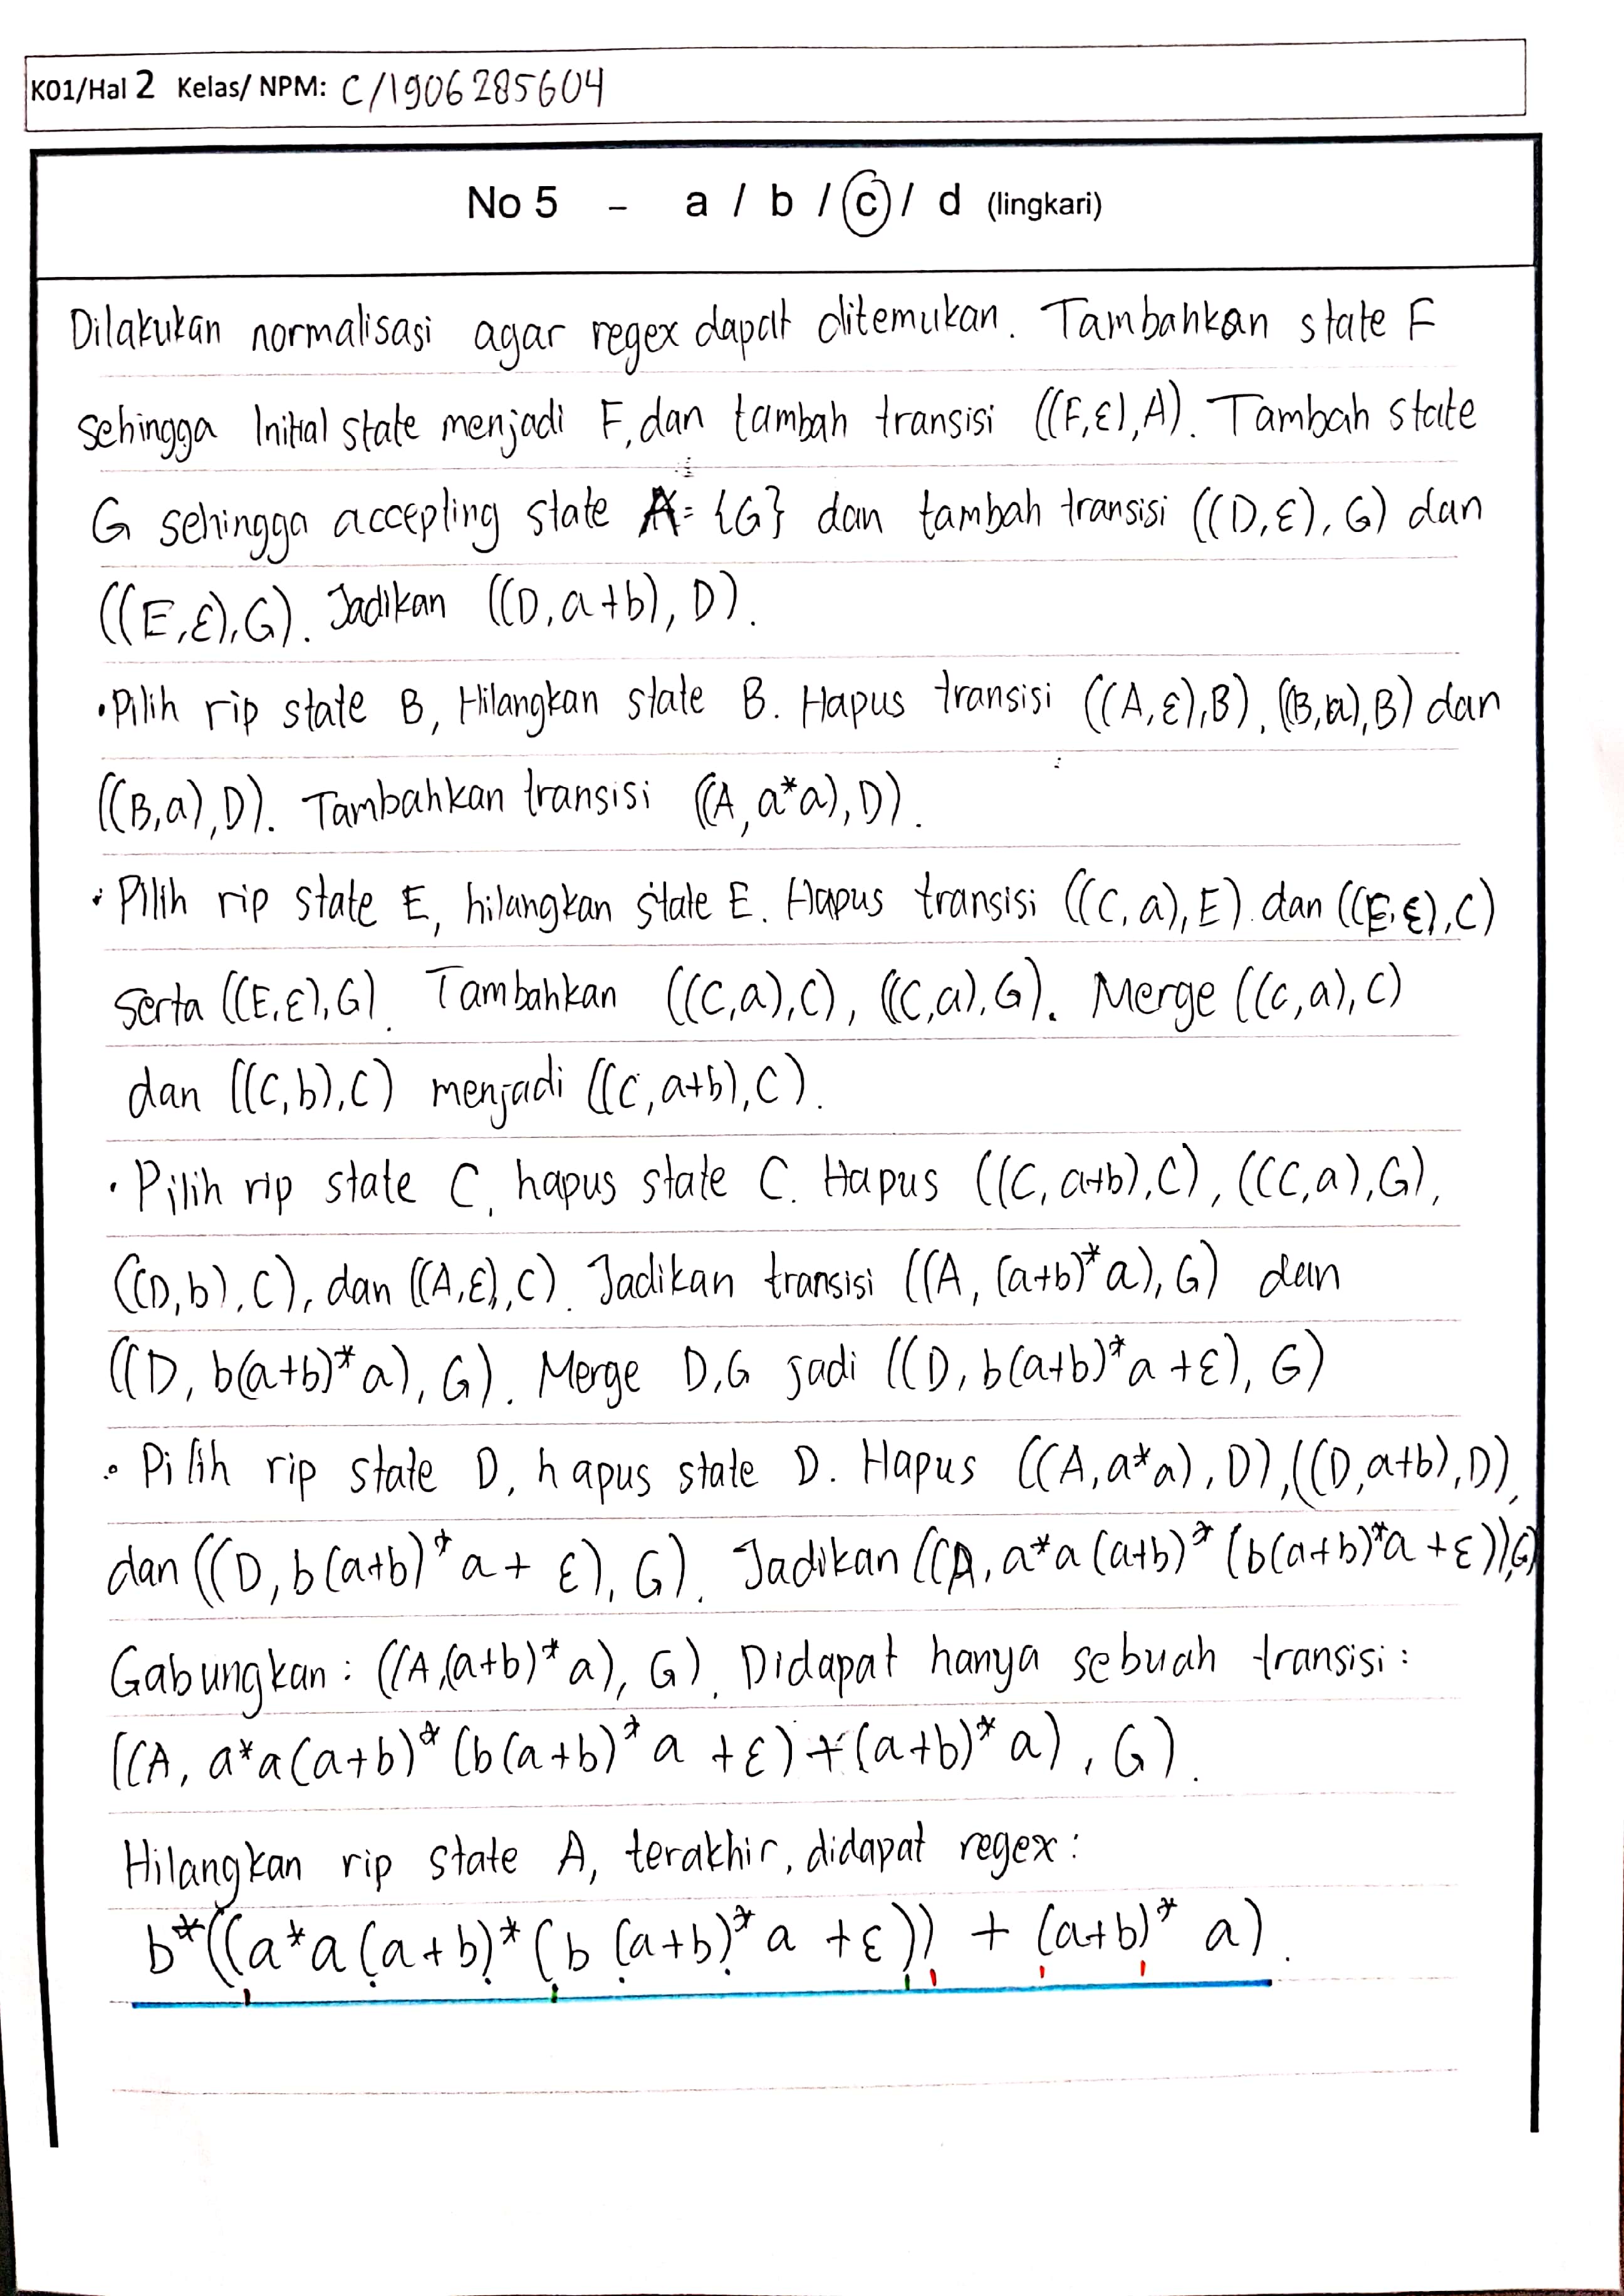 K01/Hal 2 Kelas/ NPM: C/1906285604
No 5 - a / b / c / d (lingkari)
Dilakukan normalisasi agar regex dapat ditemukan. Tambahkan state F
sehingga Initial state menjadi F, dan tambah transisi ((F,ε),A). Tambah state
G sehingga accepting state A = {G} dan tambah transisi ((D,ε), G) dan
((E,ε),G). Jadikan ((D,a+b), D).
•Pilih rip state B, Hilangkan state B. Hapus transisi ((A,ε),B), ((B,a),B) dan
((B,a),D). Tambahkan transisi ((A, a*a), D).
• Pilih rip state E, hilangkan state E. Hapus transisi ((C, a), E) dan ((E,ε),C)
serta ((E,ε),G). Tambahkan ((C,a),C), ((C,a),G). Merge ((C,a), C)
dan ((C,b),C) menjadi ((C,a+b),C).
• Pilih rip state C, hapus state C. Hapus ((C, a+b),C), ((C,a),G),
((D,b),C), dan ((A,ε),C). Jadikan transisi ((A, (a+b)*a), G) dan
((D, b(a+b)*a), G). Merge D,G jadi ((D, b(a+b)*a +ε), G)
• Pilih rip state D, hapus state D. Hapus ((A,a*a), D), ((D,a+b),D),
dan ((D, b(a+b)*a + ε), G). Jadikan ((A, a*a(a+b)*(b(a+b)*a +ε)),G)
Gabungkan : ((A,(a+b)*a), G). Didapat hanya sebuah transisi :
((A, a*a(a+b)*(b(a+b)*a +ε) + (a+b)*a), G).
Hilangkan rip state A, terakhir, didapat regex :
b*((a*a(a+b)*(b(a+b)*a +ε)) + (a+b)*a).